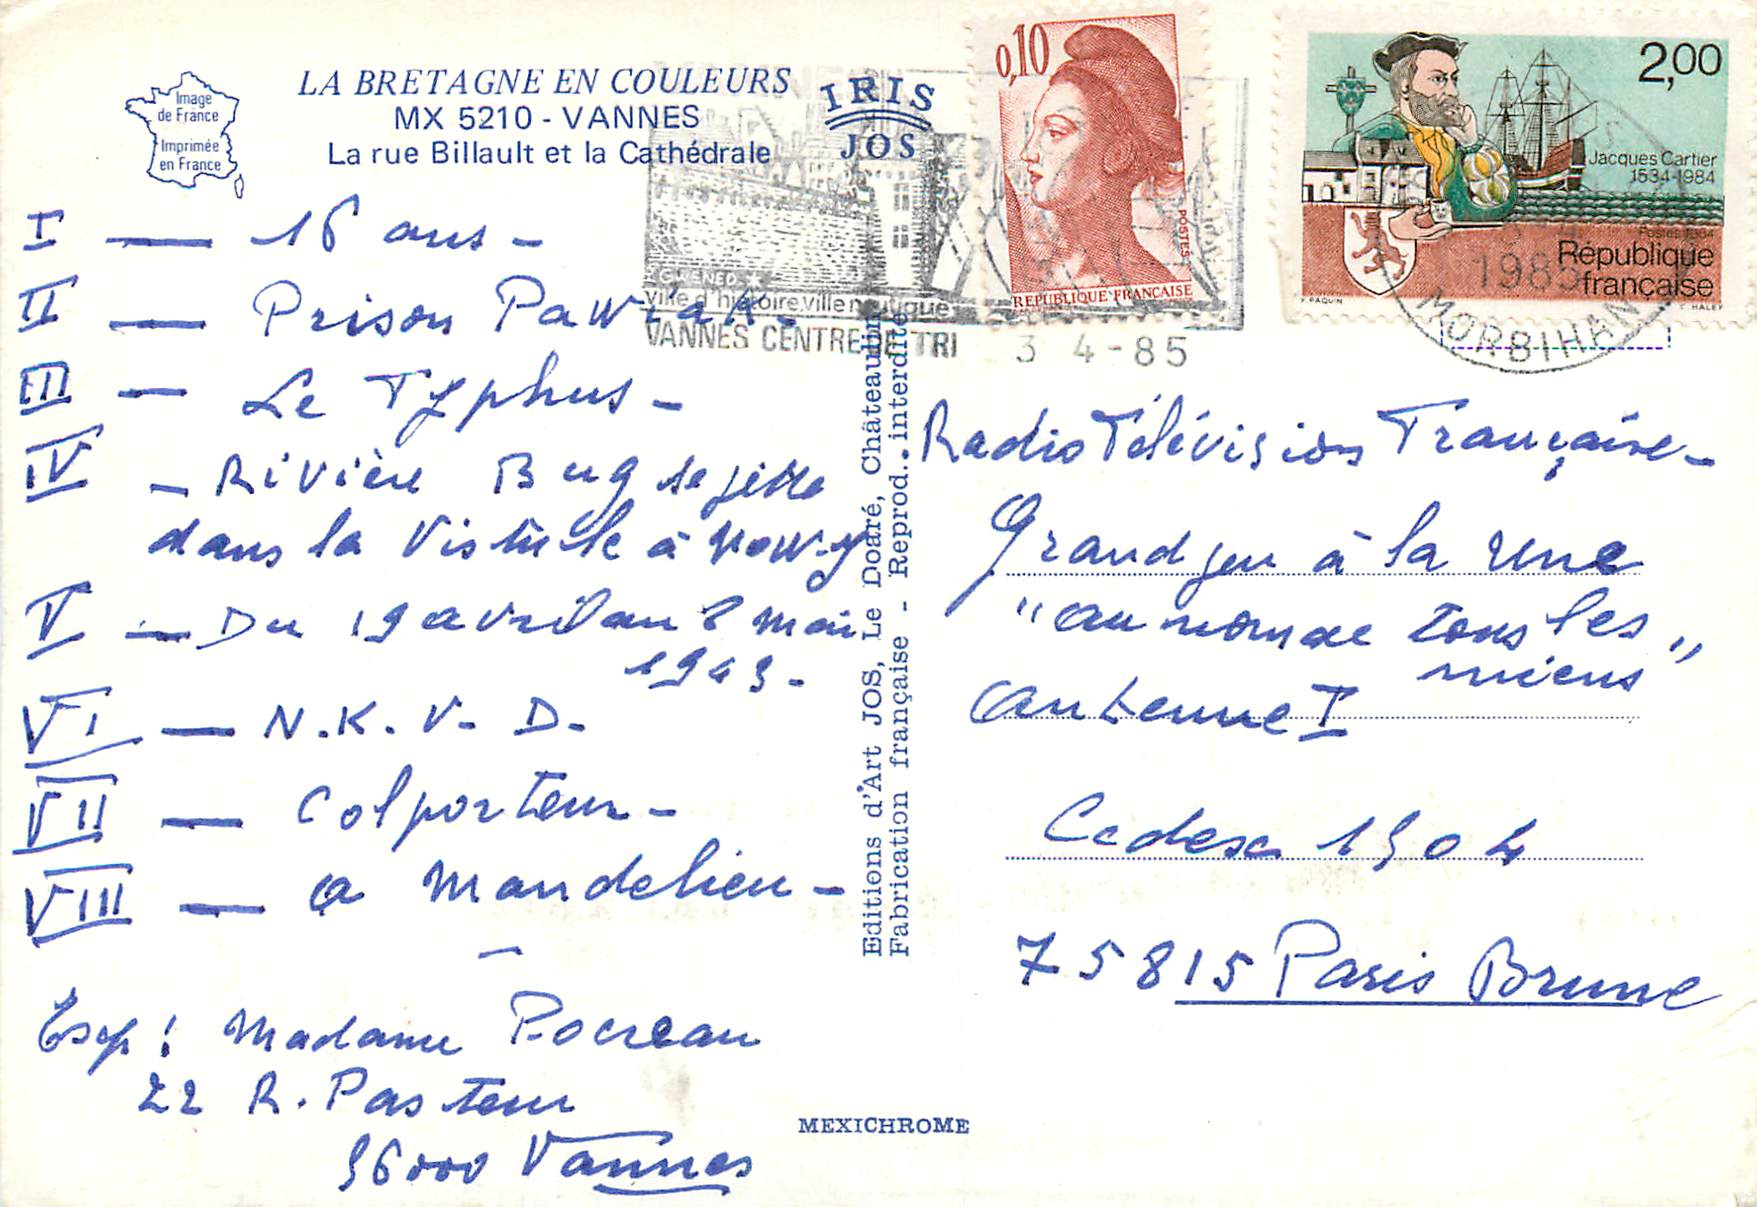 LA BRETAGNE EN COULEURS
MX 5210 - VANNES
La rue Billault et la Cathédrale
Image
de France
Imprimée
en France
IRIS
JOS
GWENED
ville d'histoire, ville nautique
VANNES CENTRE DE TRI
3 4 - 85
0,10
POSTES
REPUBLIQUE FRANÇAISE
2,00
Jacques Cartier
1534-1984
Postes 1984
République
française
Y. PAQUIN
C. HALEY
1985
MORBIHAN
I — 16 ans -
II — Prison Pawiak -
III — Le Typhus -
IV - Rivière Bug se jette
dans la Vistule à Nowy
V — Du 19 avril au 8 mai
1943 -
VI — N.K.V.D.
VII — Colporteur -
VIII — a Mandelieu -
Exp : Madame Pocreau
22 R. Pasteur
56000 Vannes
Editions d'Art JOS, Le Doaré, Châteaulin
Fabrication française - Reprod. interdite
Radio Télévision Française -
Grand jeu à la Une
"au nom de tous les
miens"
antenne I
Cedex 1504
75815 Paris Brune
MEXICHROME